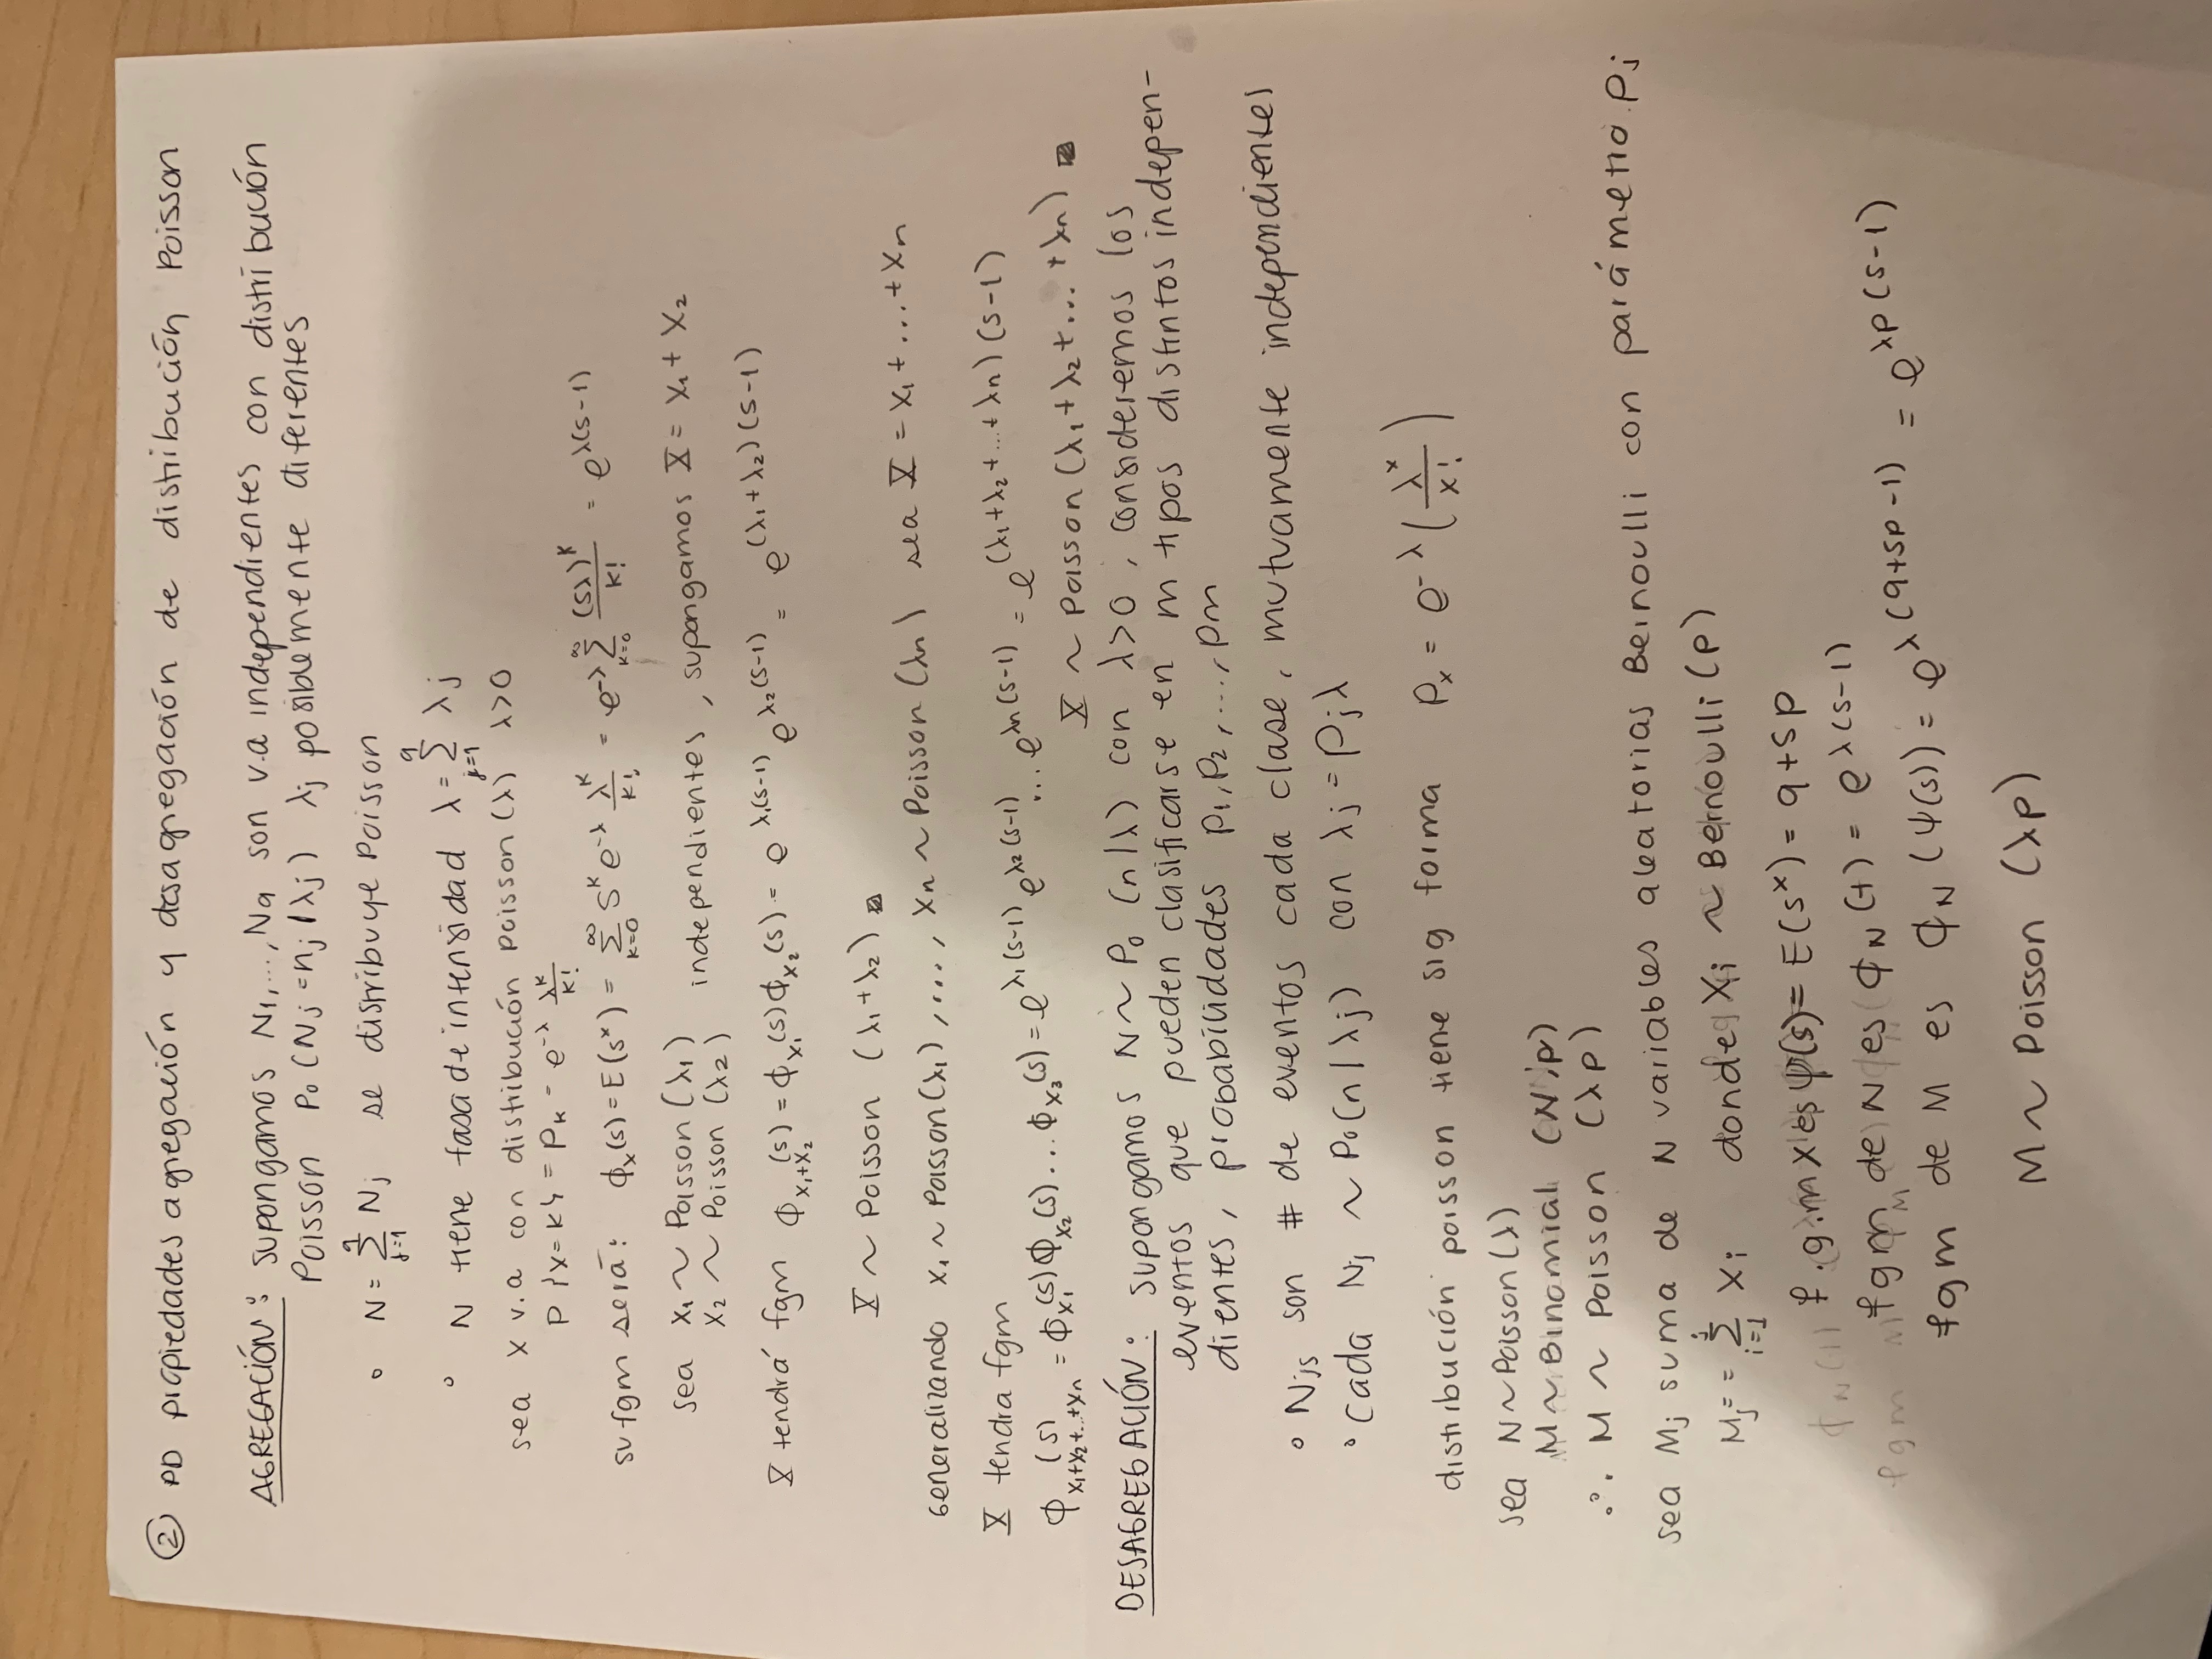 ② PD propiedades agregación y desagregación de distribución Poisson
AGREGACIÓN: supongamos N₁,...,Nq son v.a independientes con distribución
Poisson Po (Nj = nj | λj) λj posiblemente diferentes
∘ N = Σ_{j=1}^{q} Nj se distribuye Poisson
∘ N tiene tasa de intensidad λ = Σ_{j=1}^{q} λj
sea X v.a con distribución Poisson (λ) λ>0
P{X=K} = P_K = e^{-λ} λ^K/K!
su fgm será: ϕ_X(s) = E(s^x) = Σ_{K=0}^{∞} S^K e^{-λ} λ^K/K! = e^{-λ} Σ_{K=0}^{∞} (Sλ)^K/K! = e^{λ(s-1)}
sea X₁ ~ Poisson (λ₁)
X₂ ~ Poisson (λ₂) independientes, supongamos X = X₁ + X₂
X tendrá fgm ϕ_{X₁+X₂}(s) = ϕ_{X₁}(s) ϕ_{X₂}(s) = e^{λ₁(s-1)} e^{λ₂(s-1)} = e^{(λ₁+λ₂)(s-1)}
X ~ Poisson (λ₁+λ₂)
Generalizando X₁ ~ Poisson(λ₁), ..., Xn ~ Poisson (λn) sea X = X₁ + ... + Xn
X tendra fgm
ϕ_{X₁+X₂+...+Xn}(s) = ϕ_{X₁}(s) ϕ_{X₂}(s) ... ϕ_{X₃}(s) = e^{λ₁(s-1)} e^{λ₂(s-1)} ... e^{λn(s-1)} = e^{(λ₁+λ₂+...+λn)(s-1)}
X ~ Poisson (λ₁+λ₂+...+λn)
DESAGREGACIÓN: supongamos N ~ Po (n|λ) con λ>0, consideremos los
eventos que pueden clasificarse en m tipos distintos indepen-
dientes, probabilidades p₁, p₂, ..., pm
∘ Njs son # de eventos cada clase, mutuamente independientes
∘ cada Nj ~ Po(n|λj) con λj = pjλ
distribución poisson tiene sig forma P_x = e^{-λ} (λ^x/x!)
sea N ~ Poisson (λ)
M ~ Binomial (N,p)
∴ M ~ Poisson (λp)
sea Mj suma de N variables aleatorias Bernoulli con parámetro pj
Mj = = Σ_{i=1}^{j} Xi donde Xi ~ Bernoulli (p)
f.g.m X es ψ(s) = E(s^x) = q+sp
fgm de N es ϕ_N (t) = e^{λ(s-1)}
fgm de M es ϕ_N (ψ(s)) = e^{λ(q+sp-1)} = e^{λp(s-1)}
M ~ Poisson (λp)